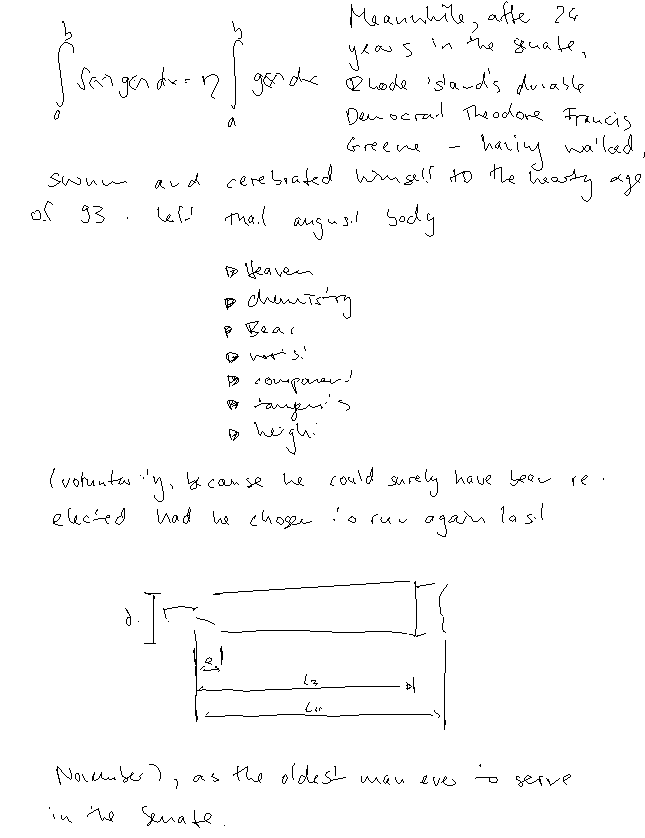 ∫ₐᵇ f(x) g(x) dx = η ∫ₐᵇ g(x) dx
Meanwhile, after 24
years in the senate,
Rhode island's durable
Democrat Theodore Francis
Greene - having walked,
swum and cerebrated himself to the hearty age
of 93 - left that august body
Heaven
chemistry
Bear
component
tangents
height
(voluntarily, because he could surely have been re-
elected had he chosen to run again last
d.
e
L3
November), as the oldest man ever to serve
in the Senate.